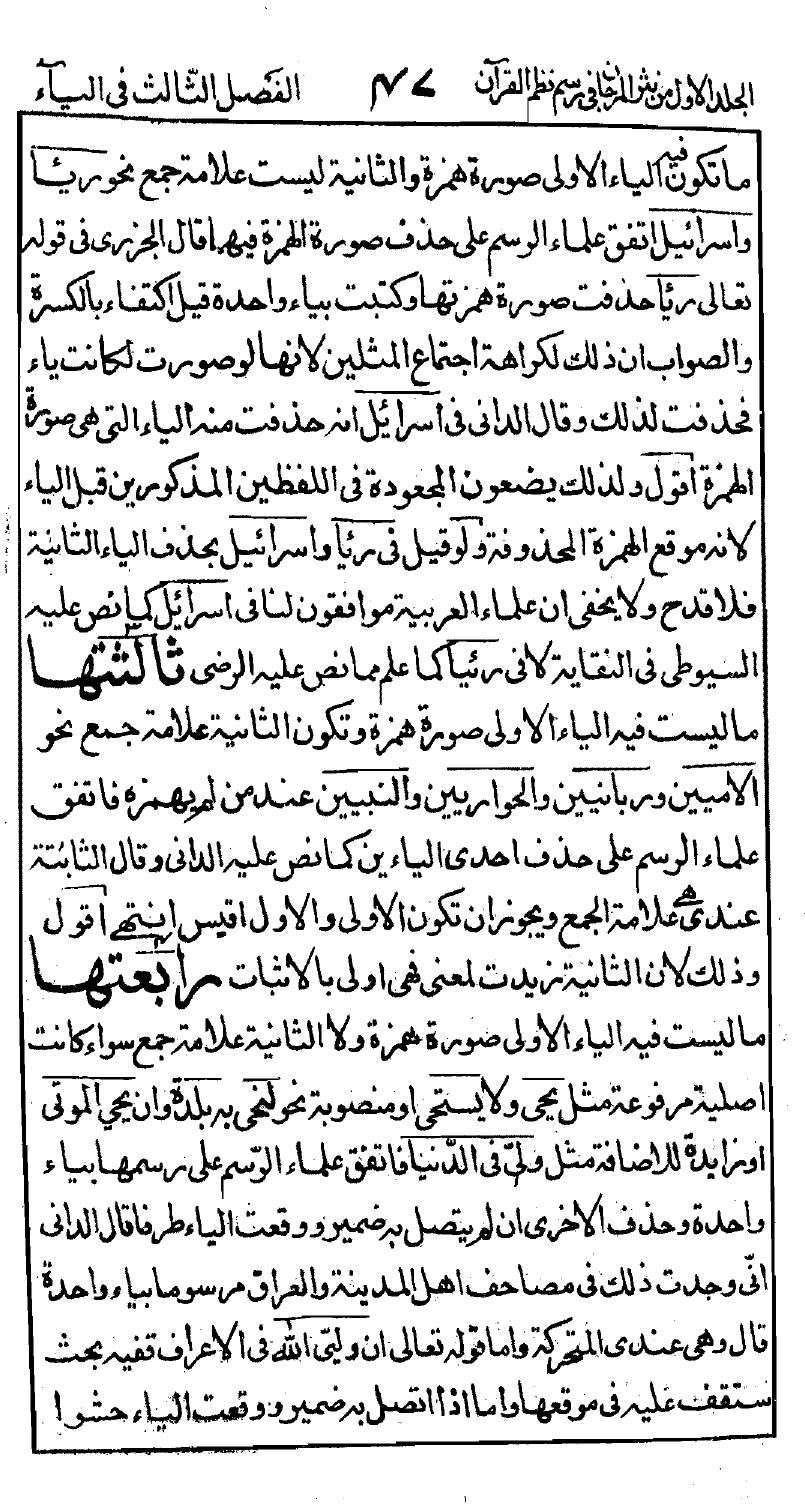 الجلد الاول من نثر المرجان فی رسم نظم القرآن ٤٧ الفصل الثالث فی الیآء
ما تكون فیه الیاء الاولی صورة همزة والثانیة لیست علامة جمع نحو رءیا
واسرائیل اتفق علماء الرسم علی حذف صورة الهمزة فیهما قال الجزری فی قوله
تعالی رئیا حذفت صورة همزتها وكتبت بیاء واحدة قیل اكتفاء بالكسرة
والصواب ان ذلك لكراهة اجتماع المثلین لانها لو صورت لكانت یاء
فحذفت لذلك وقال الدانی فی اسرائیل انه حذفت منه الیاء التی هی صورة
الهمزة اقول ولذلك یضعون المجعودة فی اللفظین المذكورین قبل الیاء
لانه موقع الهمزة المحذوفة ولو قیل فی رئیا واسرائیل بحذف الیاء الثانیة
فلا قدح ولا یخفی ان علماء العربیة موافقون لنا فی اسرائیل كما نص علیه
السیوطی فی النقایة لا فی رئیا كما علم مما نص علیه الرضی ثالثتها
ما لیست فیه الیاء الاولی صورة همزة وتكون الثانیة علامة جمع نحو
الامیین وربانیین والحواریین والنبیین عند من لم یهمزه فاتفق
علماء الرسم علی حذف احدی الیاءین كما نص علیه الدانی وقال الثابتة
عندی هی علامة الجمع ویجوز ان تكون الاولی والاول اقیس انتهی اقول
وذلك لان الثانیة زیدت لمعنی فهی اولی بالاثبات رابعتها
ما لیست فیه الیاء الاولی صورة همزة ولا الثانیة علامة جمع سواء كانت
اصلیة مرفوعة مثل یحی ولا یستحی او منصوبة نحو لنحی به بلدة وان یحی الموتی
او زایدة للاضافة مثل ولیّ فی الدّنیا فاتفق علماء الرّسم علی رسمها بیاء
واحدة وحذف الاخری ان لم یتصل به ضمیر ووقعت الیاء طرفا قال الدانی
انّی وجدت ذلك فی مصاحف اهل المدینة والعراق مرسوما بیاء واحدة
قال وهی عندی المتحركة واما قوله تعالی ان ولیّی الله فی الاعراف ففیه بحث
ستقف علیه فی موقعها واما اذا اتصل به ضمیر ووقعت الیاء حشوا